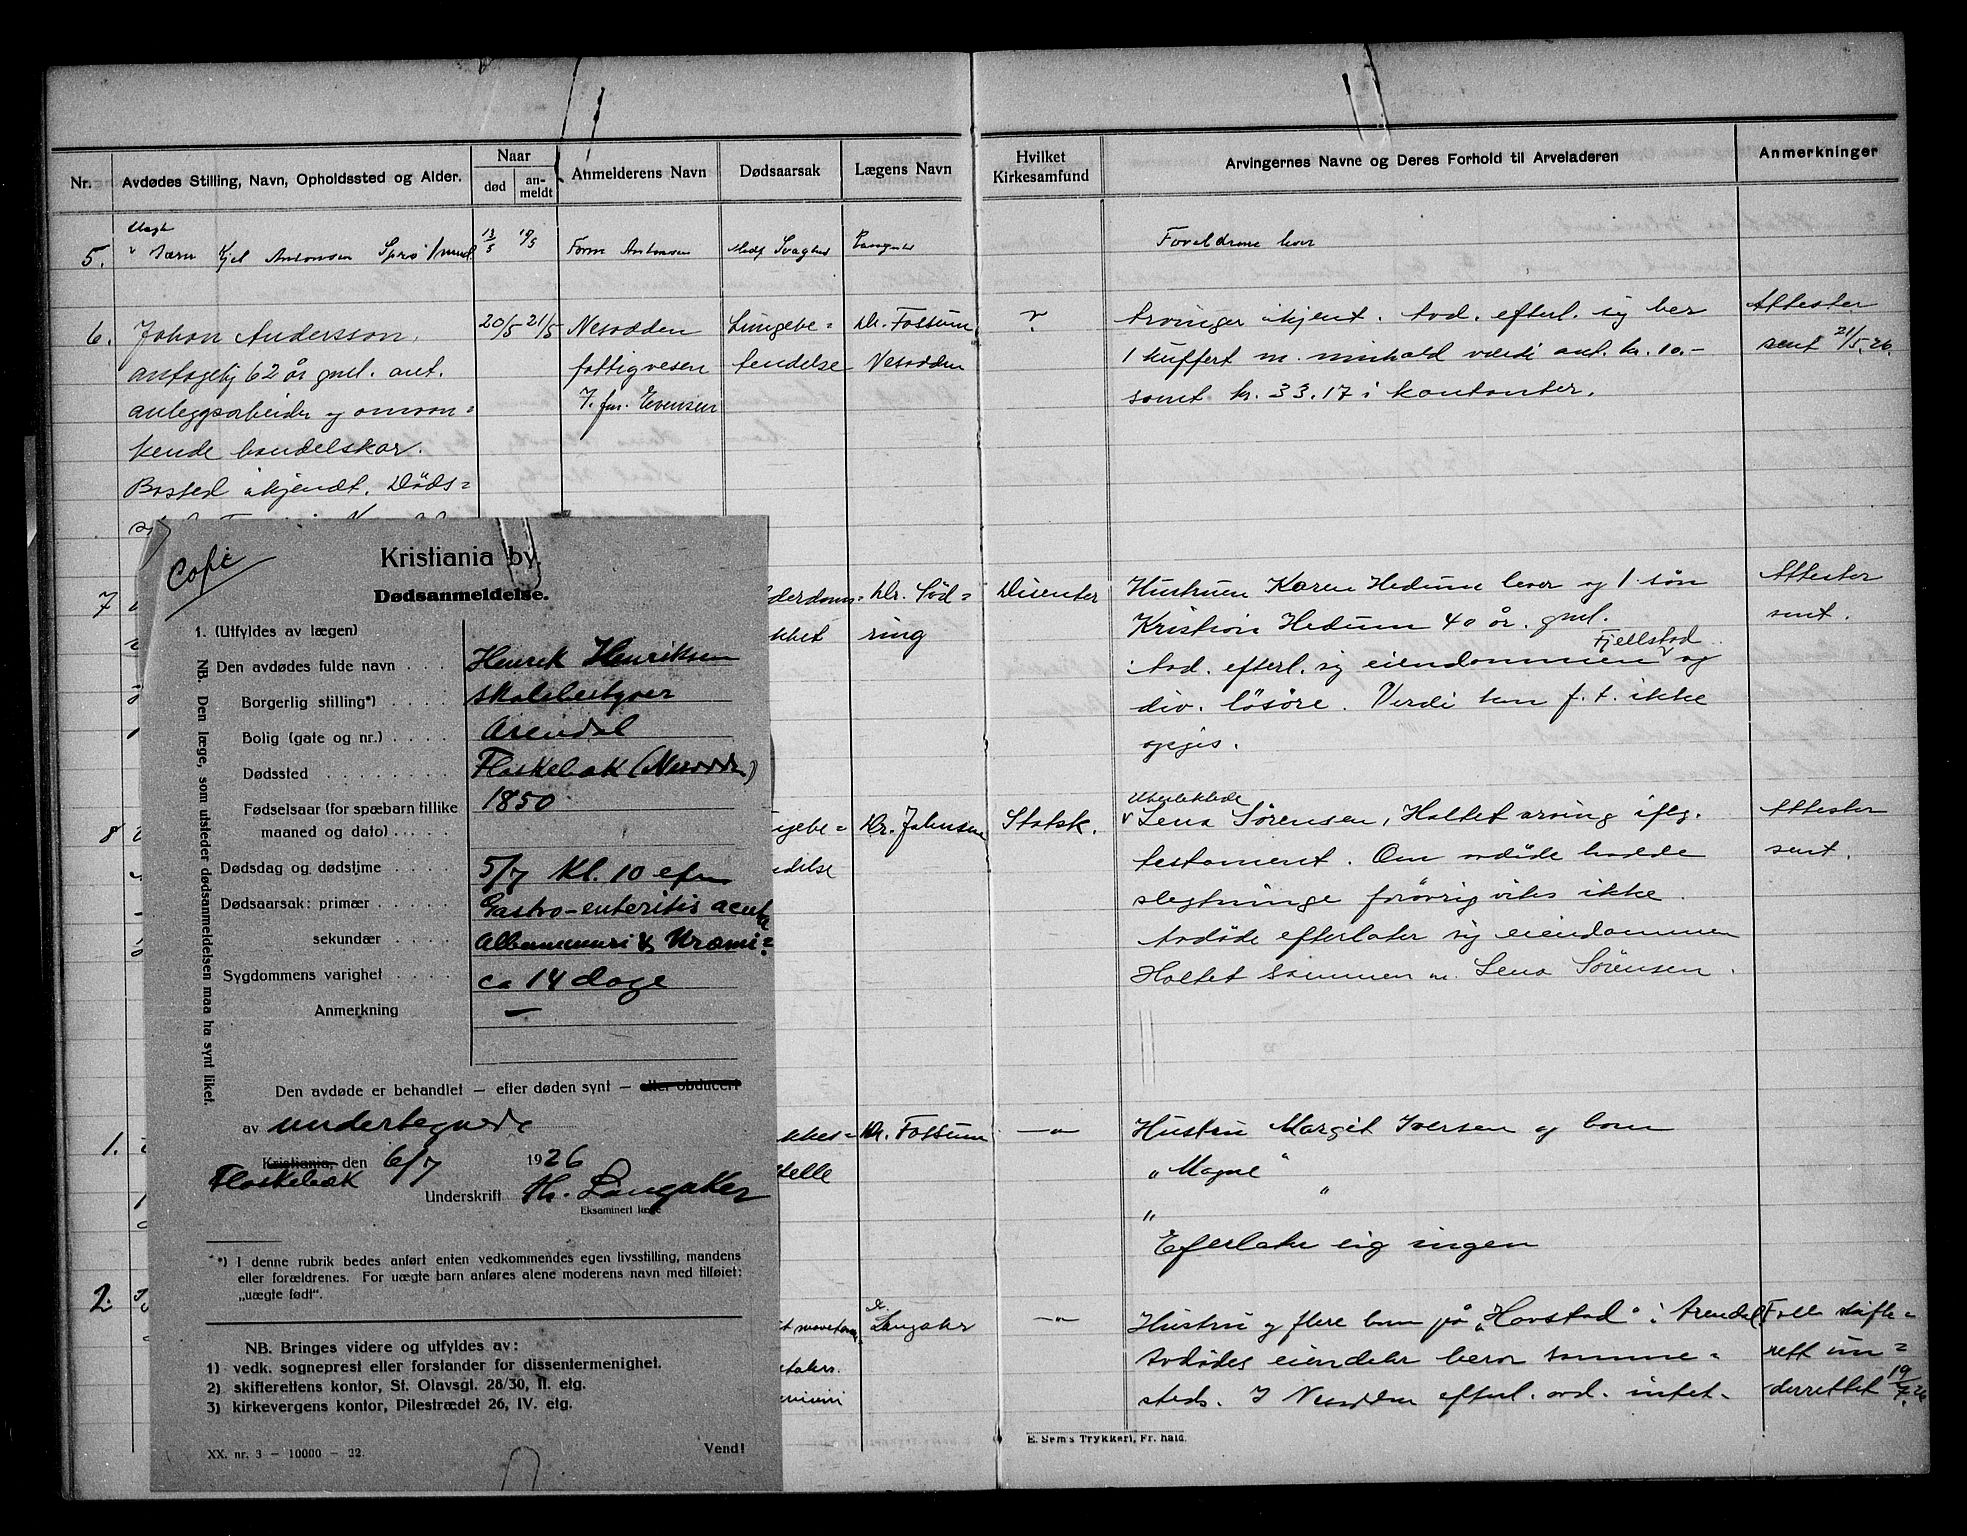 Nr.
Avdødes Stilling, Navn, Opholdssted og Alder.
Naar
død
an-
meldt
Anmelderens Navn
Dødsaarsak
Lægens Navn
Hvilket
Kirkesamfund
Arvingernes Navne og Deres Forhold til Arveladeren
Anmerkninger
5.
Kjel Antonsen
13/5
19/5
Antonsen
Medf Svaghed
Foreldrene lever
6.
Johan Andersson,
antagelig 62 år gml. ant.
anleggsarbeider og omvan-
kende handelskar.
Bosted ikjendt. Døds=
20/5 21/5
Nesodden
fattigvesen
v. fm. Evensen
Lungebe=
tendelse
Dr. Fossum
Nesodden
?
Arvinger ikjent. Avd. efterl. sig her
1 kuffert m. innhold værdi ant. kr. 10.-
samt kr. 33.17 i kontanter.
Attester
sent 21/5.26.
7
Dr. Sød=
ring
Disenter
Hustruen Karen Hedum lever og 1 søn
Kristian Hedum 40 år. gml.
Fjellstad
Avd. efterl. sig eiendommen og
div. løsøre. Verdi kan f. t. ikke
opgis.
Attester
sent.
8
Dr. Johnsen
Statsk.
Lena Sørensen, Haltet arving iflg.
testament. Om avdøde hadde
slegtninge forøvrig vites ikke.
Avdøde efterlater sig eiendommen
Haltet sammen m. Lena Sørensen.
Attester
sent.
1.
Dr. Fossum
—"—
Hustru Margit Iversen og barn
" Magne "
"
"
Efterlater sig ingen
2.
Dr. Langaker
—"—
Hustru og flere barn på „Havstad" i Arendal
Avdødes eiendeler beror samme=
steds. I Nesodden efterl. avd. intet.
skifte=
rett un=
derrettet 19/7 26
E. Sem's Trykkeri, Fr. hald.
Copi
Kristiania by.
Dødsanmeldelse.
NB. Den læge, som utsteder dødsanmeldelsen maa ha synt liket.
1. (Utfyldes av lægen)
Den avdødes fulde navn . . . Henrik Henriksen
Borgerlig stilling*) . . . . skolebestyrer
Bolig (gate og nr.) . . . . Arendal
Dødssted . . . . . . . Flaskebæk (Nesodden)
Fødselsaar (for spæbarn tillike 1850
maaned og dato) . . . . .
Dødsdag og dødstime . . . . 5/7 Kl. 10 efm
Dødsaarsak: primær . . . . Gastro-enteritis acuta
sekundær . . . . Albuminuri &
Sygdommens varighet . . . . ca 14 dage
Anmerkning —
Den avdøde er behandlet — efter døden synt — eller obducert
av undertegnede
Kristiania, den 6/7 1926
Flaskebæk
Underskrift Th. Langaker
Eksaminert læge
*) I denne rubrik bedes anført enten vedkommendes egen livsstilling, mandens
eller forældrenes. For uægte barn anføres alene moderens navn med tilføiet:
„uægte født".
NB. Bringes videre og utfyldes av:
1) vedk. sogneprest eller forstander for dissentermenighet.
2) skifterettens kontor, St. Olavsgt. 28/30, II. etg.
3) kirkevergens kontor, Pilestrædet 26, IV. etg.
XX. nr. 3 — 10000 — 22.
Vend!